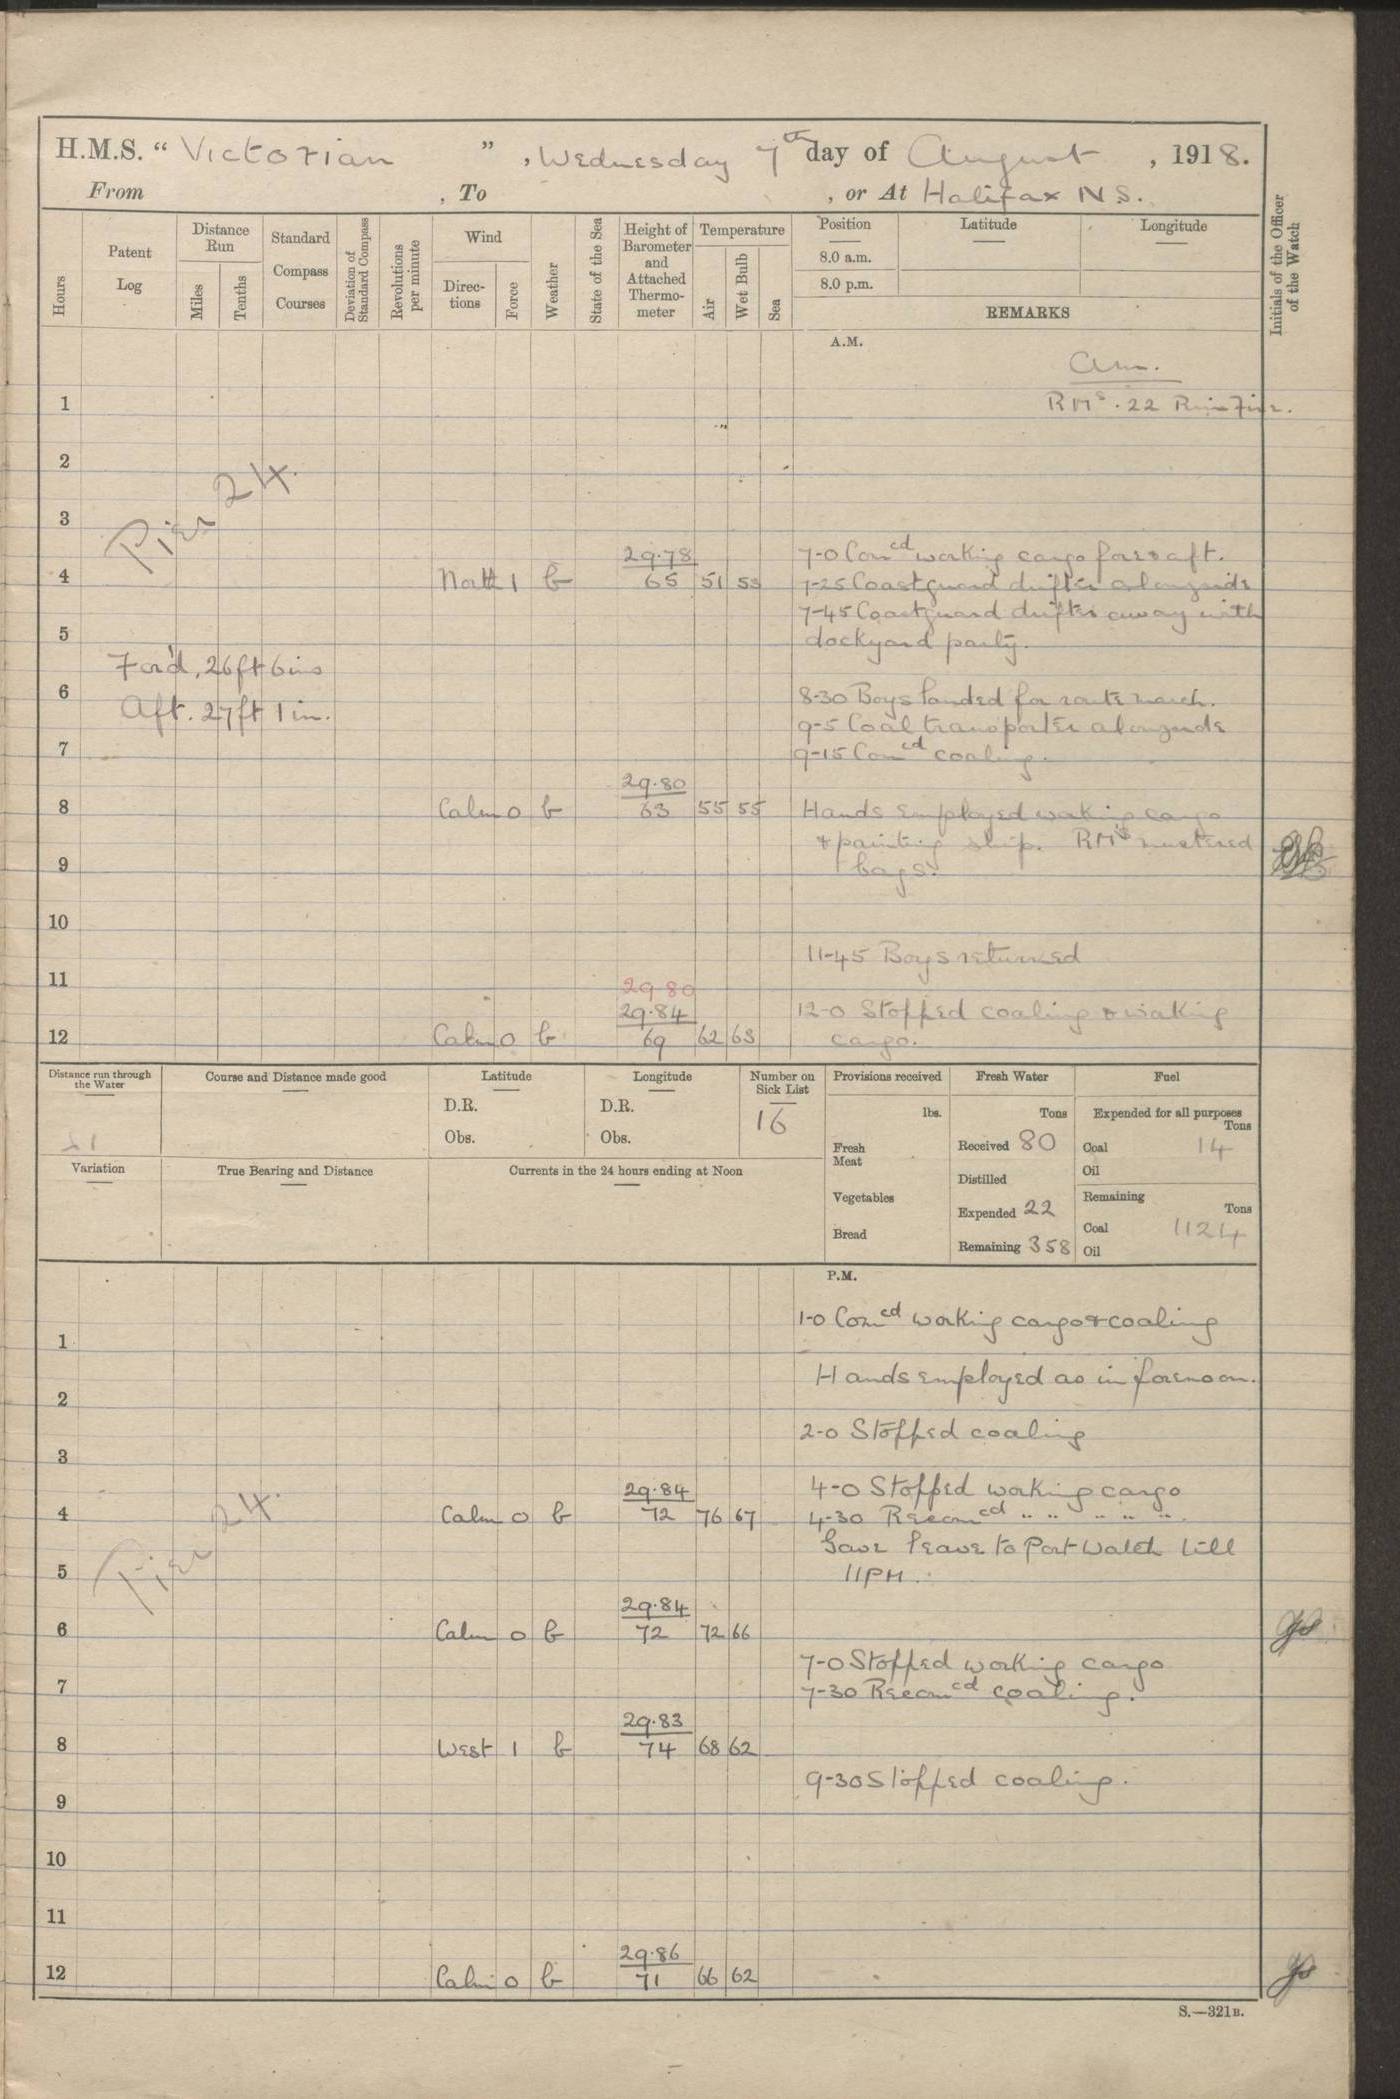 H.M.S. “ Victorian ” , Wednesday 7th day of August , 1918.
From , To , or At Halifax N S.
Hours
Patent Log
Distance Run
Miles
Tenths
Standard Compass Courses
Deviation of Standard Compass
Revolutions per minute
Wind
Direc-tions
Force
Weather
State of the Sea
Height of Barometer and Attached Thermo-meter
Temperature
Air
Wet Bulb
Sea
Position
8.0 a.m.
8.0 p.m.
Latitude
Longitude
REMARKS
Initials of the Officer of the Watch
A.M.
am.
1 RMs. 22 Rim Fire.
2
Pier 24.
3
29.78 7-0 Comcd working cargo fore & aft.
4 North 1 b 65 51 53 7-25 Coastguard drifter alongside
7-45 Coastguard drifter away with
5 dockyard party.
For'd, 26ft 6ins
6 8-30 Boys landed for route march.
Aft. 27ft 1 in. 9-5 Coal transporter alongside
7 9-15 Comcd coaling.
29.80
8 Calm 0 b 63 55 55 Hands employed working cargo
& painting ship. RMs mustered
9 bags.
10
11-45 Boys returned
11
29 80
29.84 12-0 Stopped coaling & working
12 Calm 0 b 69 62 63 cargo.
Distance run through the Water
Course and Distance made good
Latitude
D.R.
Obs.
Longitude
D.R.
Obs.
Number on Sick List
16
Provisions received
lbs.
Fresh Meat
Vegetables
Bread
Fresh Water
Tons
Received 80
Distilled
Expended 22
Remaining 358
Fuel
Expended for all purposes
Tons
Coal 14
Oil
Remaining
Tons
Coal 1124
Oil
Variation
True Bearing and Distance
Currents in the 24 hours ending at Noon
P.M.
1-0 Comcd working cargo & coaling
1
Hands employed as in forenoon.
2
2-0 Stopped coaling
3
29.84 4-0 Stopped working cargo
4 Calm 0 b 72 76 67 4-30 Recomcd " " " " "
Pier 24.
Gave leave to Port Watch till
5 11PM.
29.84
6 Calm 0 b 72 72 66
7-0 Stopped working cargo
7 7-30 Recomcd coaling.
29.83
8 West 1 b 74 68 62
9-30 Stopped coaling.
9
10
11
29.86
12 Calm 0 b 71 66 62
S.—321B.